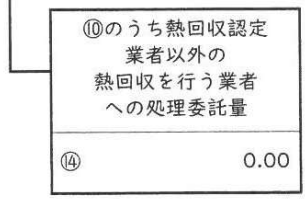 ⑩のうち熱回収認定
業者以外の
熱回収を行う業者
への処理委託量
⑭ 0.00